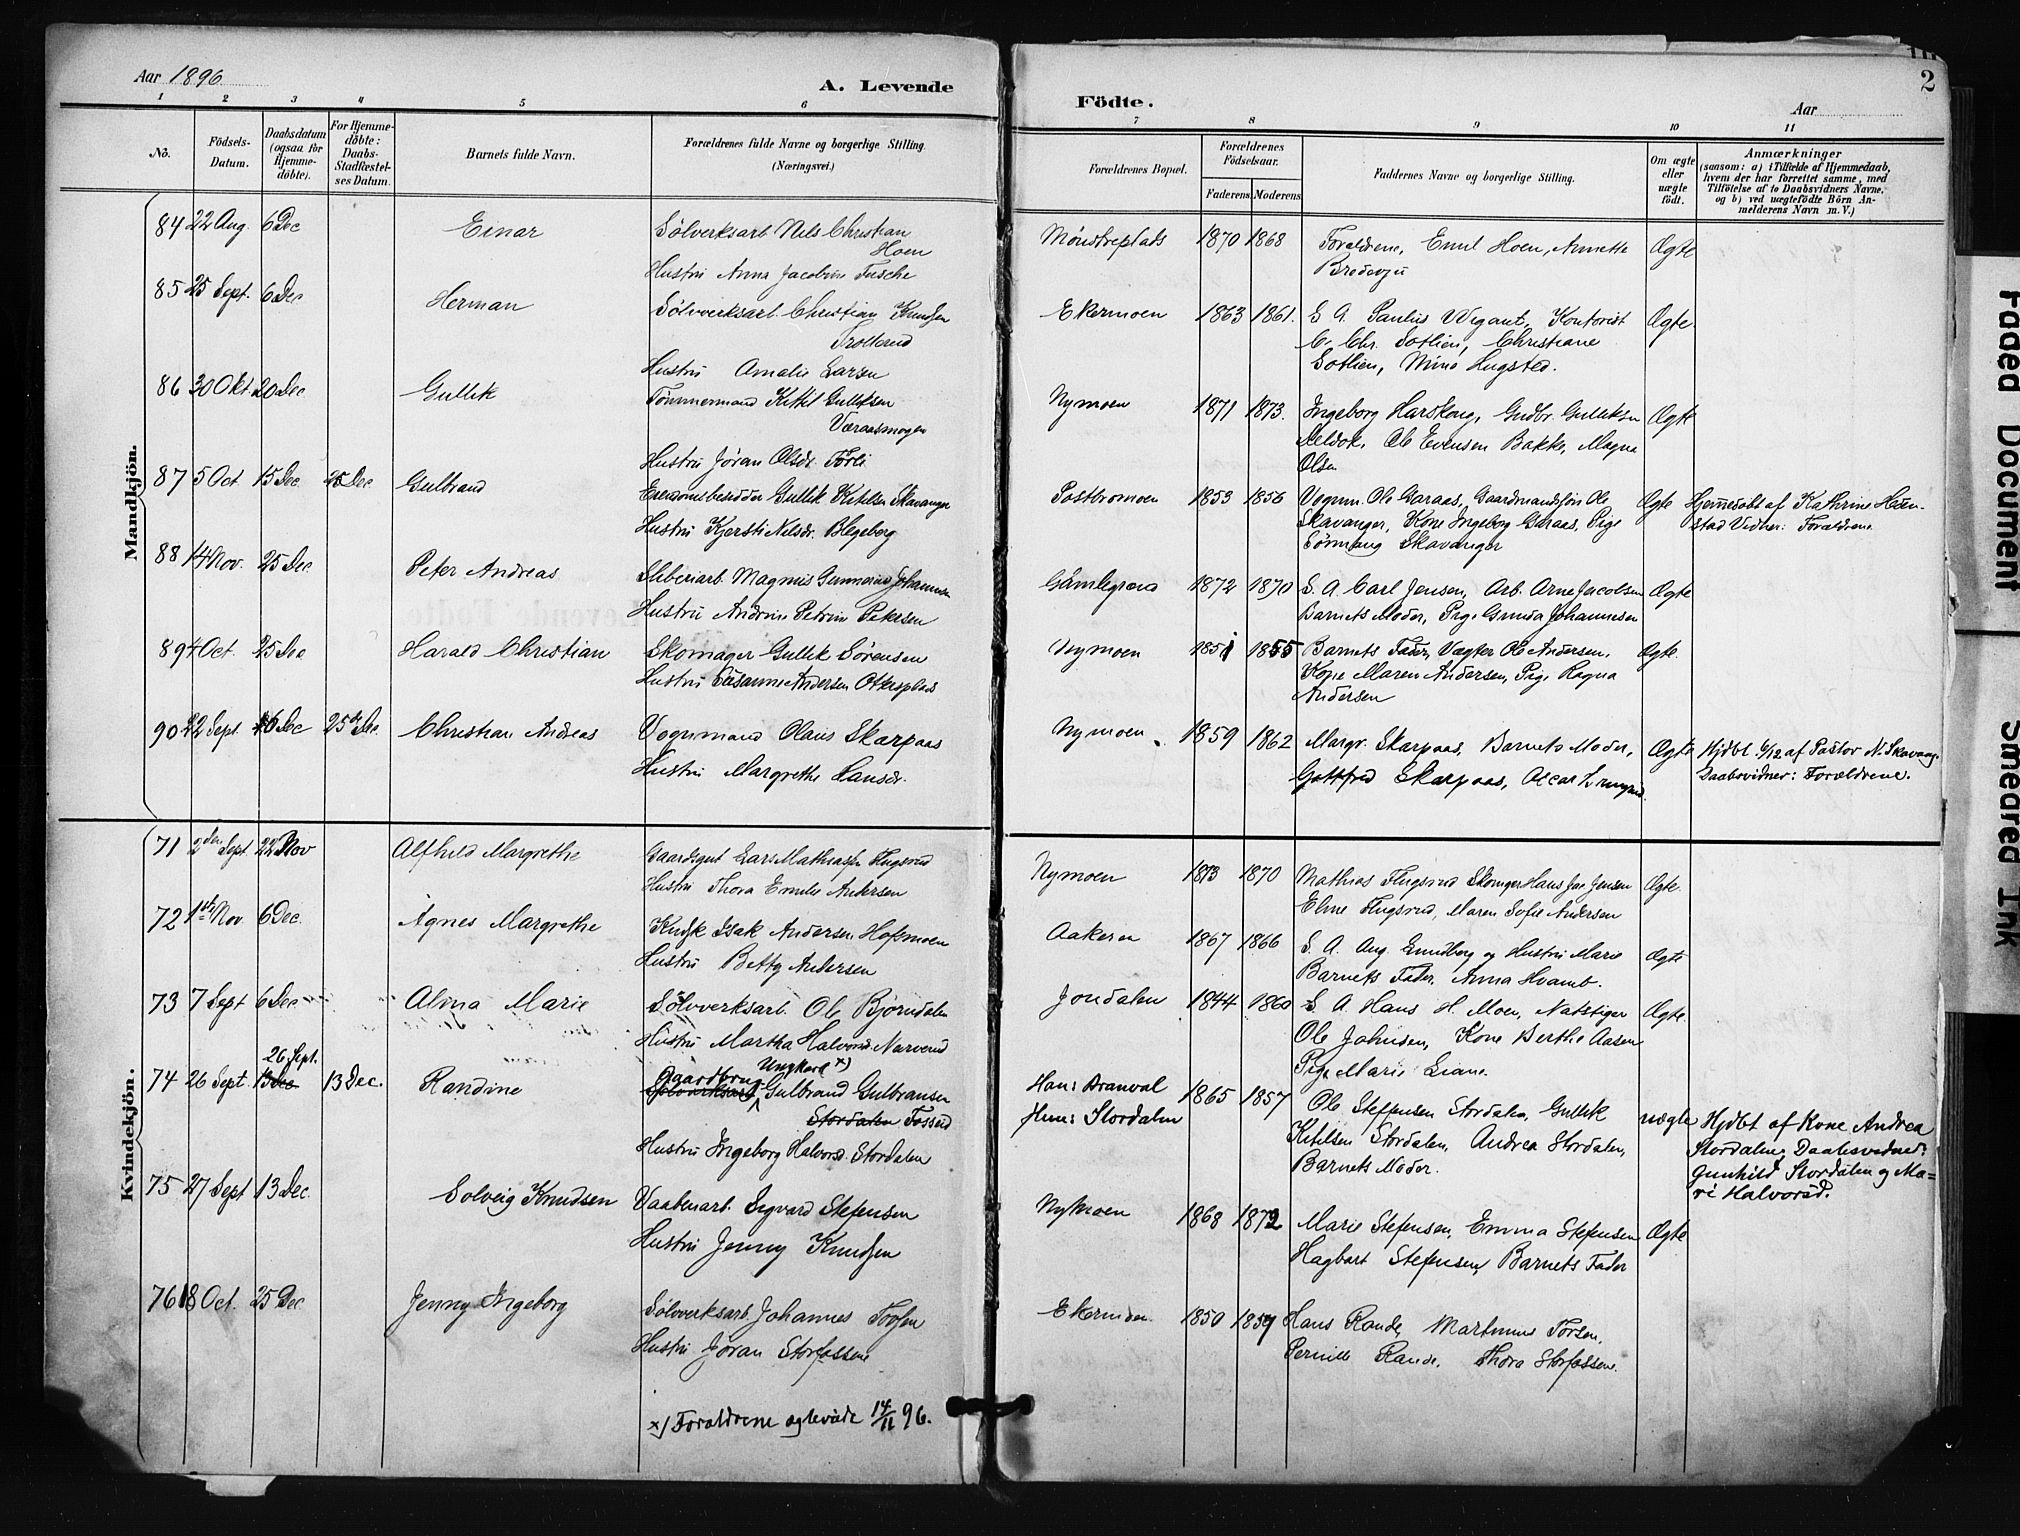 Aar 1896
A. Levende
Födte.
Aar
2
1 2 3 4 5 6 7 8 9 10 11
No.
Födsels-Datum.
Daabsdatum (ogsaa for Hjemme-döbte).
For Hjemme-döbte: Daabs-Stadfæstel-ses Datum.
Barnets fulde Navn.
Forældrenes fulde Navne og borgerlige Stilling.
(Næringsvei.)
Forældrenes Bopæl.
Forældrenes Födselsaar.
Faderens. Moderens.
Faddernes Navne og borgerlige Stilling.
Om ægte eller uægte födt.
Anmærkninger
(saasom: a) i Tilfælde af Hjemmedaab,
hvem der har forrettet samme, med
Tilföielse af to Daabsvidners Navne,
og b) ved uægtefödte Börn An-
melderens Navn m. V.)
Mandkjön.
84 22 Aug. 6 Dec Einar Sölverksarb. Nils Christian Mönstreplads 1870 1868 Forældrene, Emil Hoen, Annette Ægte
Hoen
Hustru Anna Jacobine Fusche
85 25 Sept. 6 Dec Herman Sölvverksarb. Christian Knudsen Ekermoen 1863 1861. S. A. Paulus Wigant, Kontorist Ægte.
Trollerud C. Chr. Sotlien, Christiane
Hustru Amalie Larsen Sotlien, Mina Hugsted.
86 30 Okt. 20 Dec Gullik Tömmermand Kittil Gulliksen Nymoen 1871 1873. Ingeborg Harskoug, Gudbr. Gulliksen Ægte
Væraasmogen Meldok, Ole Evensen Bakke, Magna
Hustru Jöran Olsdr. Förli Olsen
87 5 Oct. 15 Dec. 25 Dec. Gulbrand Eiendomsbesidder Gullik Kittelsen Skavanger Pastormoen 1853 1856 Vognm. Ole Garaas, Gaardmandssön Ole Ægte Hjemmedöbt af Kathrine Heen-
Hustru Kjersti Nilsdr. Blegeberg Skavanger, Kone Ingeborg Garaas, Pige stad Vidner: Forældrene.
Skavanger
88 14 Nov. 25 Dec Peter Andreas Sliberiarb. Magnus Gunnerius Johannesen Gamlegrænd 1872 1870 S. A. Carl Jensen, Arb. Arne Jacobsen Ægte
Hustru Andrine Petrine Petersen Barnets Moder, Pige Gunda Johannesen
89 4 Oct. 25 Dec Harald Christian Skomager Gullik Sörensen Nymoen 1851 1855 Barnets Fader, Vægter Ole Andersen, Ægte.
Hustru Susanne Andersen Otersplads Kone Maren Andersen, Pige Ragna
Andersen
90 22 Sept. 6 Dec 25de Dec. Christian Andreas Vognmand Olaus Skarpaas Nymoen 1859 1862 Margr. Skarpaas, Barnets Moder, Ægte Hjdbt. 6/12 af Pastor N. Skavang.
Hustru Margrethe Hansdr. Gottfred Skarpaas, Oscar Daabsvidner: Forældrene.
Kvindekjön.
71 2den Sept. 22 Nov Alfhild Margrethe Gaardsgut Lars Mathiassen Flugsrud Nymoen 1873 1870 Mathias Flugsrud Skomager Hans Jac. Jensen Ægte.
Hustru Thora Emilie Andersen Eline Flugsrud, Maren Sofie Andersen
72 1ste Nov. 6 Dec. Agnes Margrethe Kudsk Isak Andersen Hofsmoen Aakeren 1867 1866 S. A. Aug. Lundberg og Hustru Marie Ægte
Hustru Betty Andersen Barnets Fader, Anna Hvamb.
73 7 Sept 6 Dec. Alma Marie Sölvverksarb. Ole Bjorndalen Jondalen 1844 1860 S. A. Hans H. Moen, Natstiger Ægte.
Hustru Martha Halvorsd. Narverud Ole Johnsen, Kone Berthe Aasen
Pige Marie Liane.
26 Sept.
74 26 Sept. 13 Dec 13 Dec. Randine Gaardbrug. Ungkarl x) Sölvverksarb. Gulbrand Gulbransen Han: Dranval 1865 1857 Ole Steffensen Stordalen, Gullik uægte Hjdbt af Kone Andrea
Stordalen Fossud Hun: Stordalen Kittelsen Stordalen, Andrea Stordalen, Stordalen, Daabsvidner:
Hustru Ingeborg Halvorsd. Stordalen Barnets Moder. Gunhild Stordalen og Ma-
ri Halvorsd.
75 27 Sept 13 Dec. Solveig Knudsen Vaabenarb. Sigvard Stefensen Nymoen 1868 1872 Marie Stefensen, Emma Stefensen Ægte
Hustru Jenny Knudsen Hagbart Stefensen, Barnets Fader
76 18 Oct. 25 Dec Jenny Ingeborg Sölvverksarb. Johannes Torsen Ekermoen 1850 1859 Hans Rande, Martinius Torsen,
Hustru Jöran Storfossene Pernille Rande, Thora Storfossene.
x) Forældrene ægteviede 14/11 96.
Faded Document
Smeared Ink